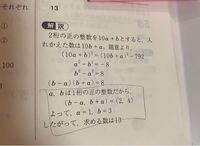 それぞれ
13
解説
2桁の正の整数を10a+bとすると、入
れかえた数は10b+a。題意より、
(10a+b)²=(10b+a)²-792
a²-b²=-8
b²-a²=8
(b-a)(b+a)=8
a、bは1桁の正の整数だから、
(b-a, b+a)=(2, 4)
よって、a=1、b=3
したがって、求める数は13
100